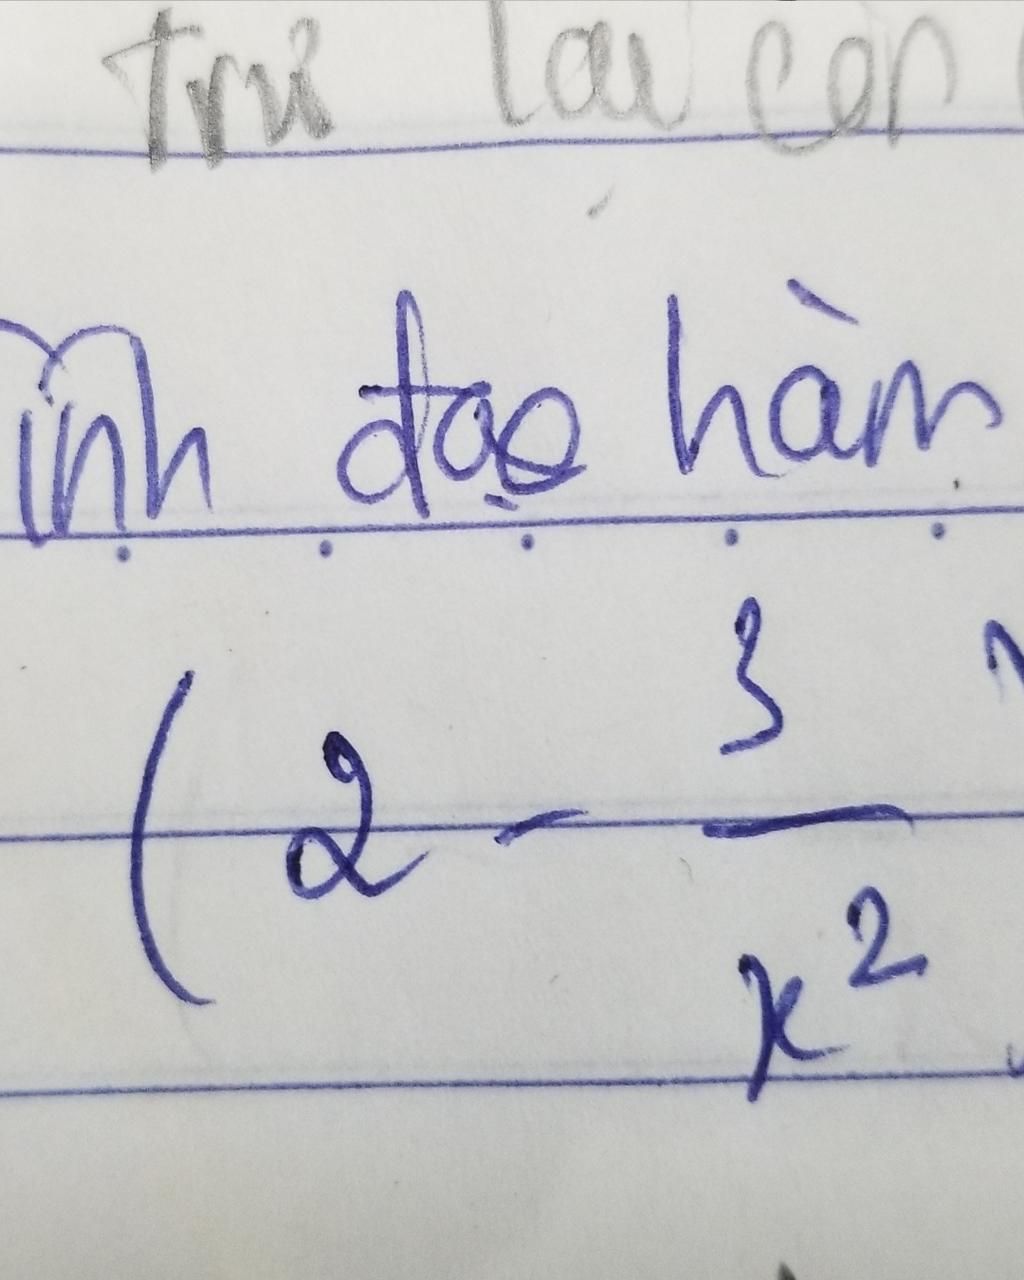 trừ lại còn
Tính đạo hàm
( 2 - 3/x²